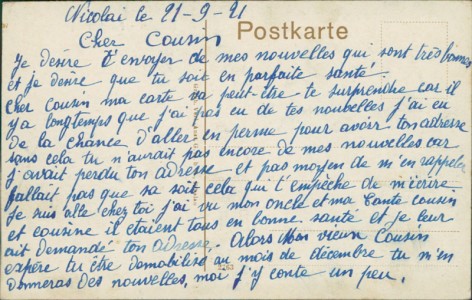 Nicolai le 21-9-21
Postkarte
Cher Cousin
Je désire t'envoyer de mes nouvelles qui sont très bonnes
et je désire que tu soit en parfaite santé
Cher cousin ma carte va peut-être te surprendre car il
y a longtemps que j'ai pas eu de tes nouvelles j'ai eu
de la chance d'aller en perme pour avoir ton adresse
sans cela tu n'aurait pas encore de mes nouvelles car
j'avait perdu ton adresse et pas moyen de m'en rappeler
fallait pas que sa soit cela qui t'empêche de m'écrire
Je suis allé chez toi j'ai vu mon oncle et ma tante cousin
et cousine il étaient tous en bonne santé et je leur
ait demandé ton adresse. Alors Mon vieux Cousin
espère tu être démobilisé au mois de décembre tu m'en
donneras des nouvelles, moi j'y conte un peu.